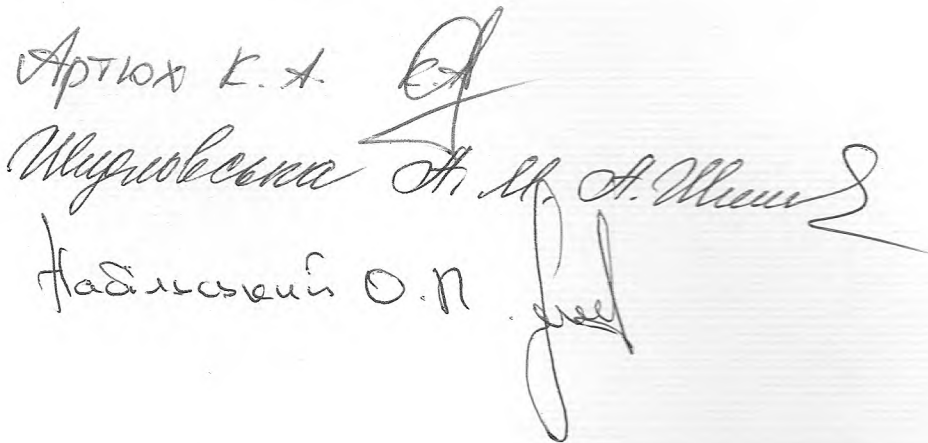 Артюх К. А.
Шидловська А. М. А. Ши
Набільський О. П